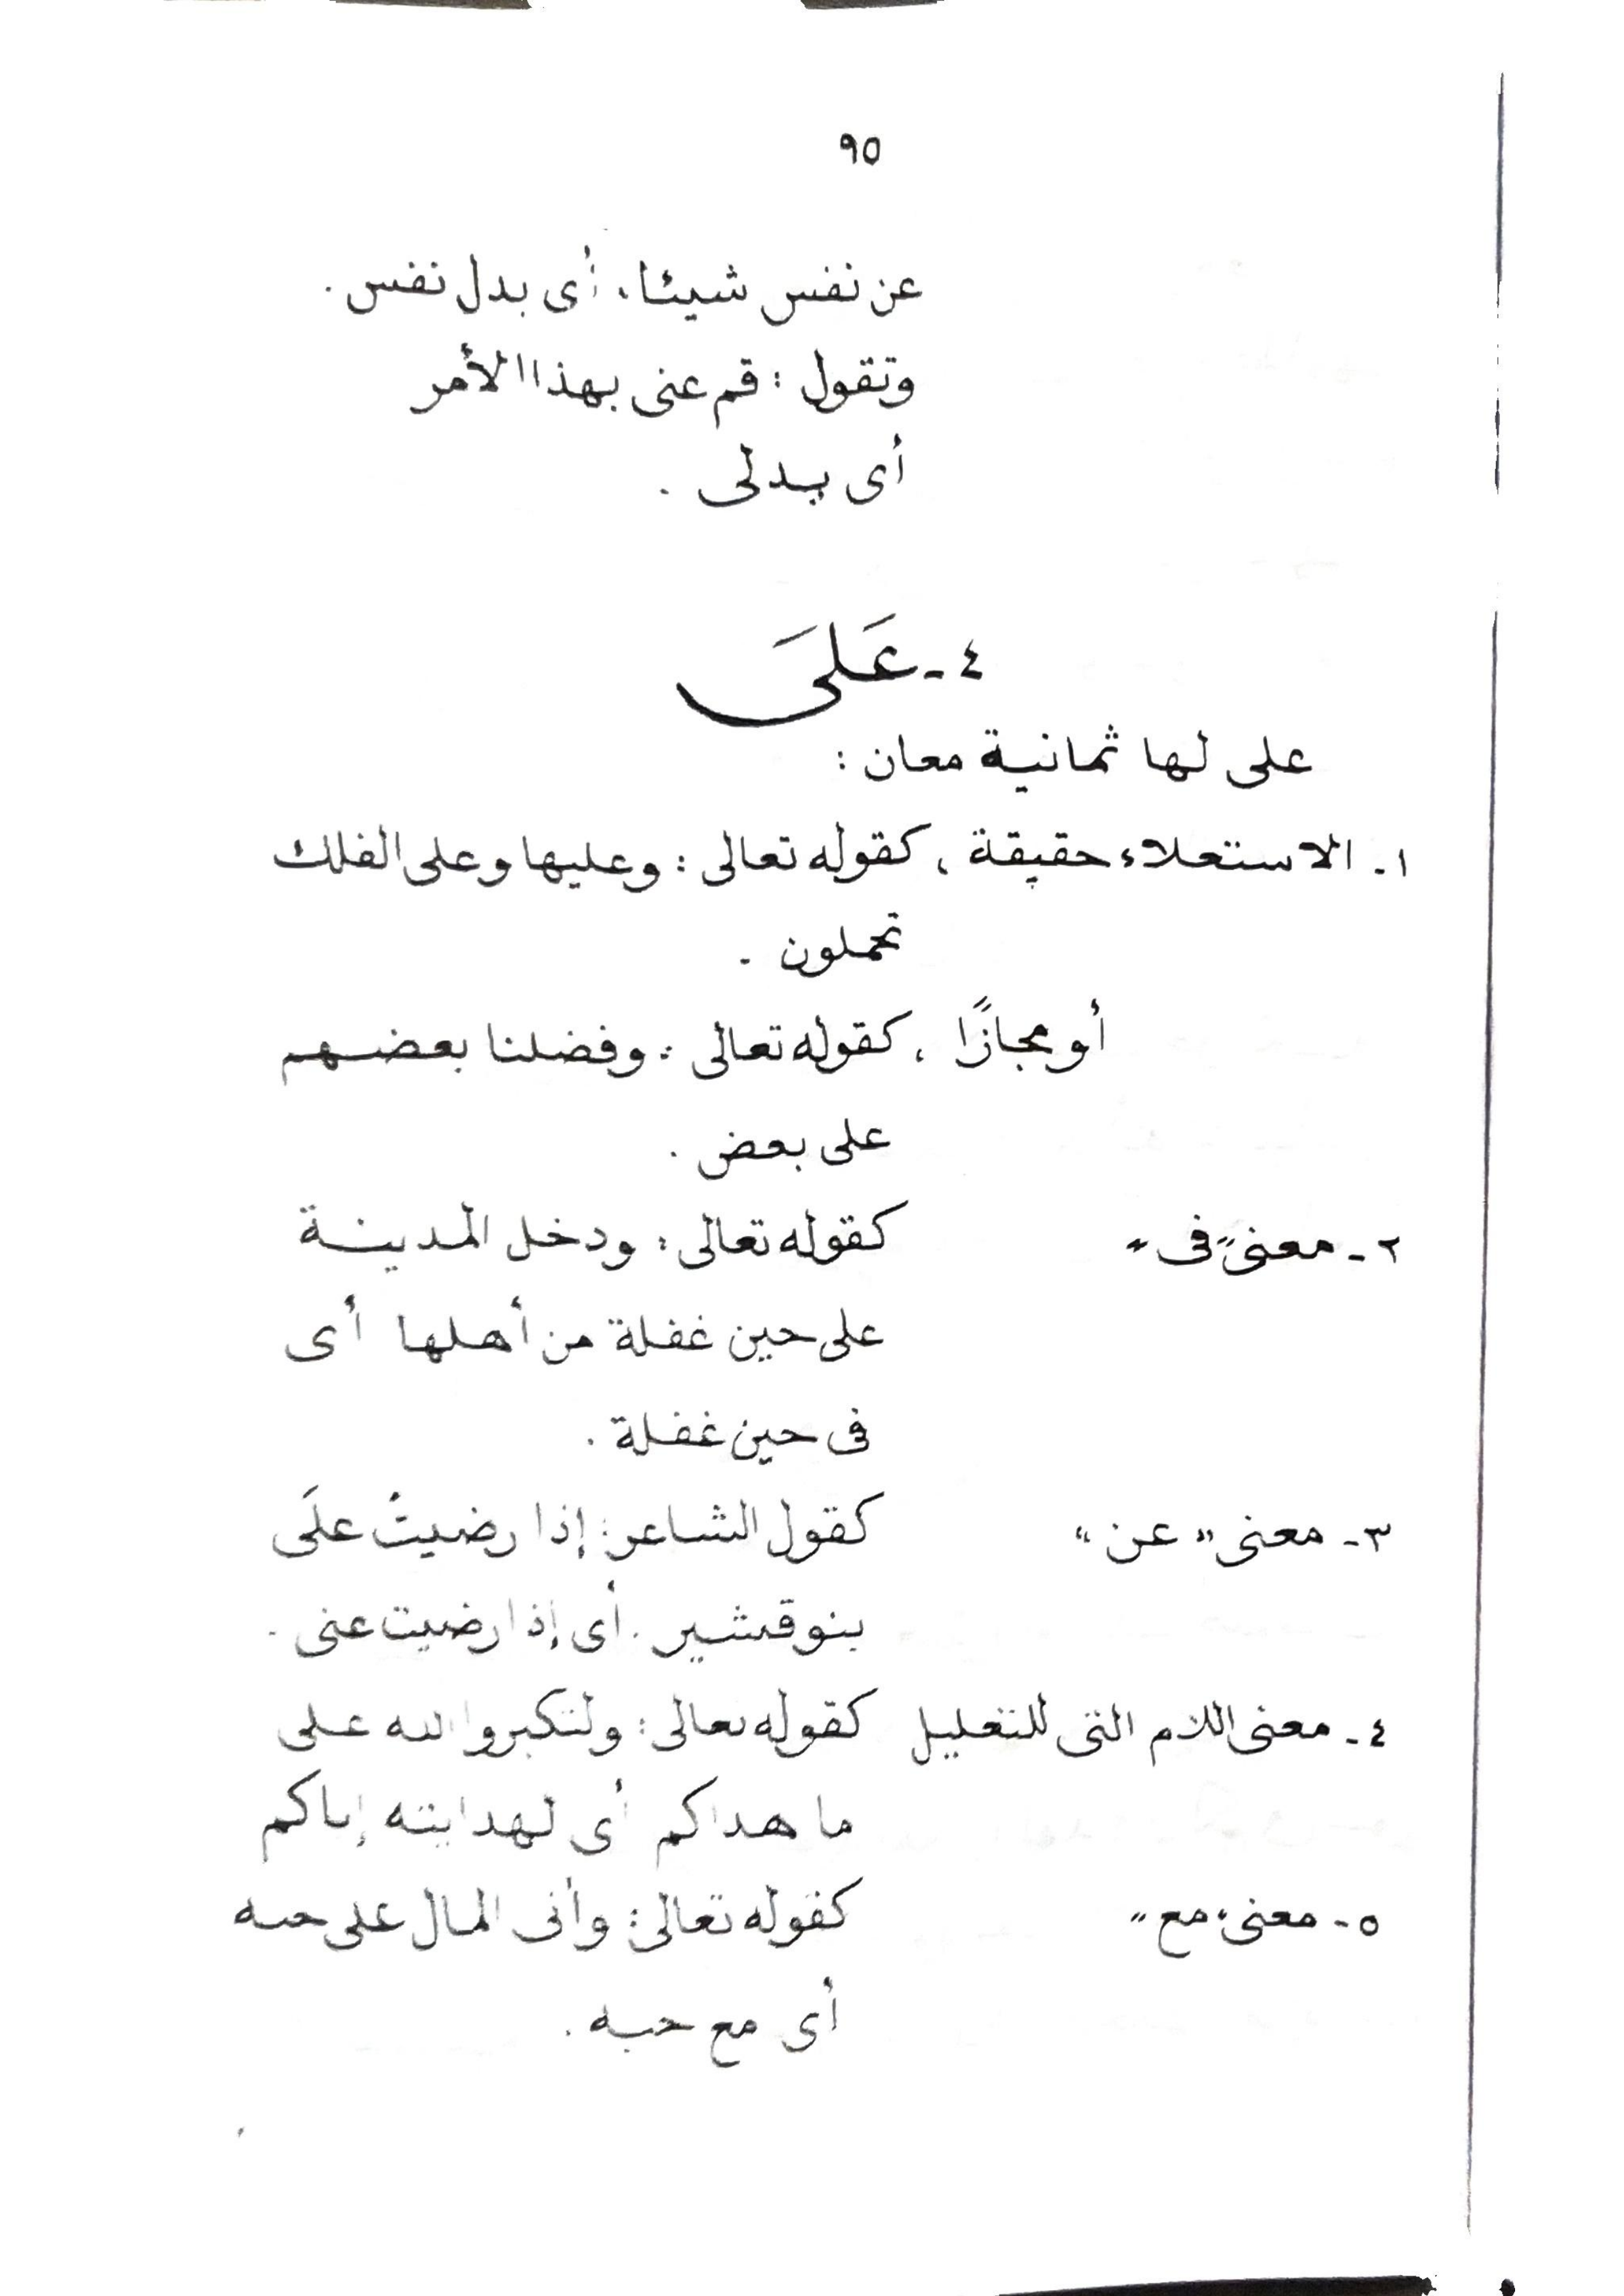 ٩٥
عن نفس شيئا، أى بدل نفس.
وتقول : قم عنى بهذا الأمر
أى بدلى .
٤ - عَلَىَ
على لها ثمانية معان :
١- الاستعلاء حقيقة ، كقوله تعالى : وعليها وعلى الفلك
تحملون .
أو مجازًا ، كقوله تعالى : وفضلنا بعضهم
على بعض .
٢- معنى "فى" كقوله تعالى : ودخل المدينة
على حين غفلة من أهلها أى
فى حين غفلة .
٣- معنى "عن" كقول الشاعر : إذا رضيتُ علَى
بنو قشير . أى إذا رضيت عنى .
٤- معنى اللام التى للتعليل كقوله تعالى : ولتكبروا الله على
ما هداكم أى لهدايته إياكم
٥- معنى "مع" كقوله تعالى : وأتى المال على حبه
أى مع حبه .